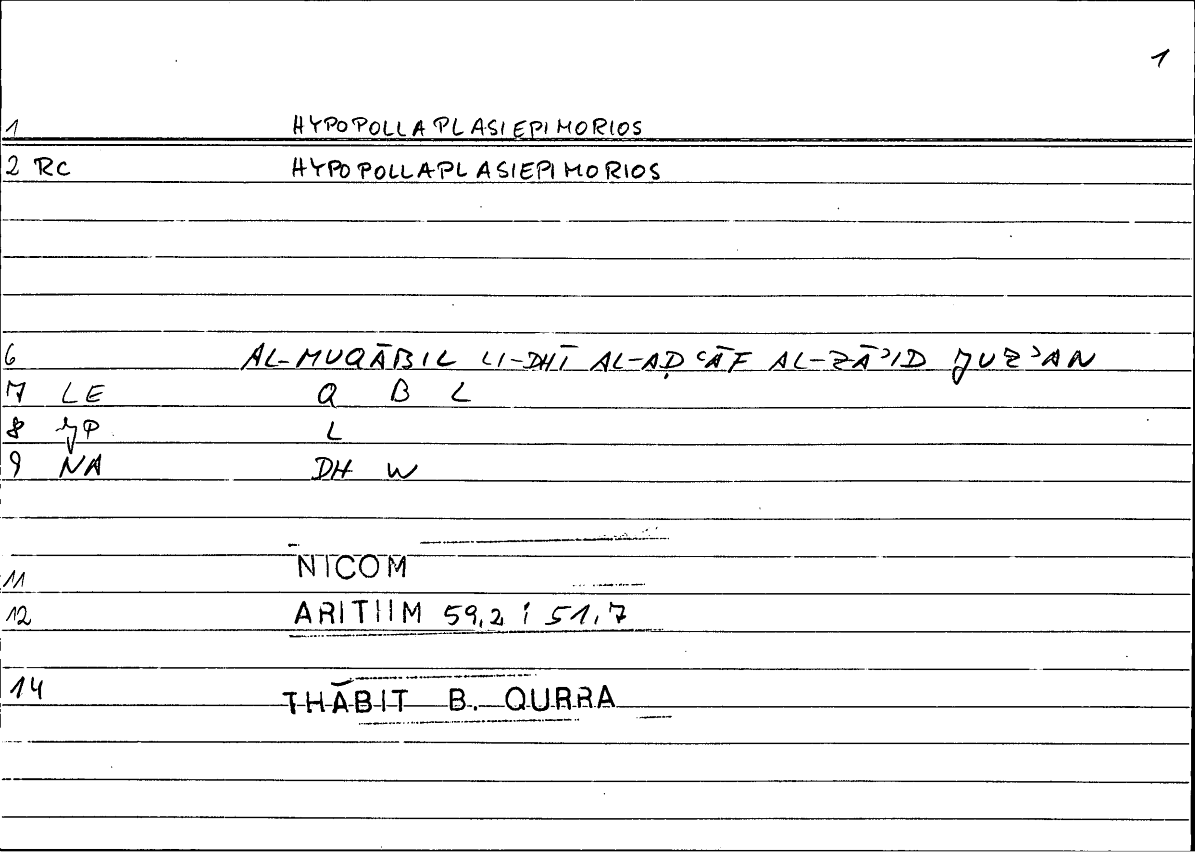 1
1 HYPOPOLLAPLASIEPIMORIOS
2 RC HYPOPOLLAPLASIEPIMORIOS
6 AL-MUQĀBIL LI-DHĪ AL-AḌʿĀF AL-ZĀʾID JUZʾAN
7 LE Q B L
8 JP L
9 NA DH W
11 NICOM
12 ARITIIM 59,2 ; 51,7
14 THĀBIT B. QURRA